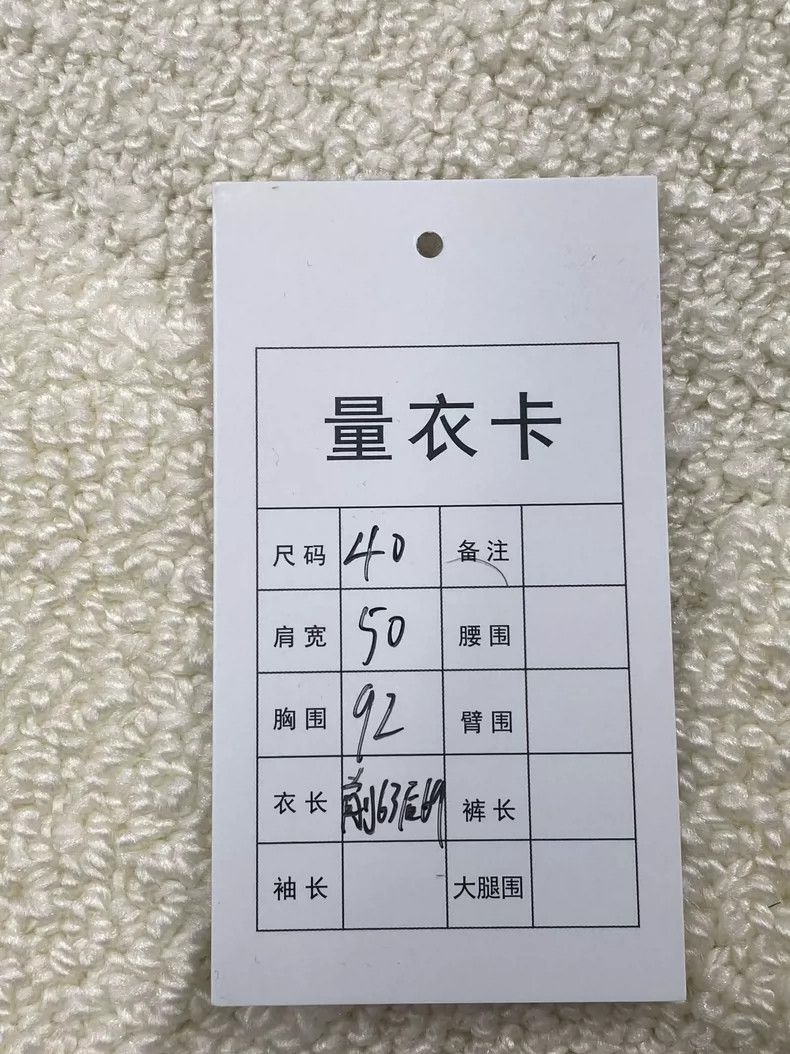 量衣卡
尺码 40 备注
肩宽 50 腰围
胸围 92 臂围
衣长 前63后69 裤长
袖长 大腿围